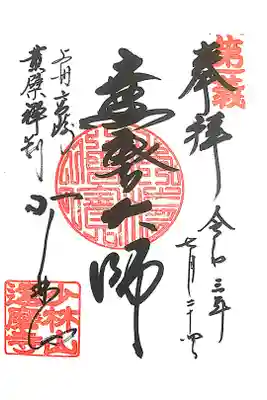 第一義
奉拝
令和三年
七月二十四日
達磨大師
上州高崎
黄檗禅刹
少林山
達磨寺